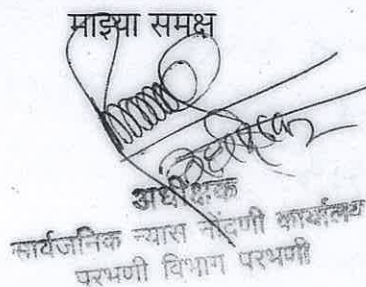 माझ्या समक्ष
अधीक्षक
सार्वजनिक न्यास नोंदणी कार्यालय
परभणी विभाग परभणी